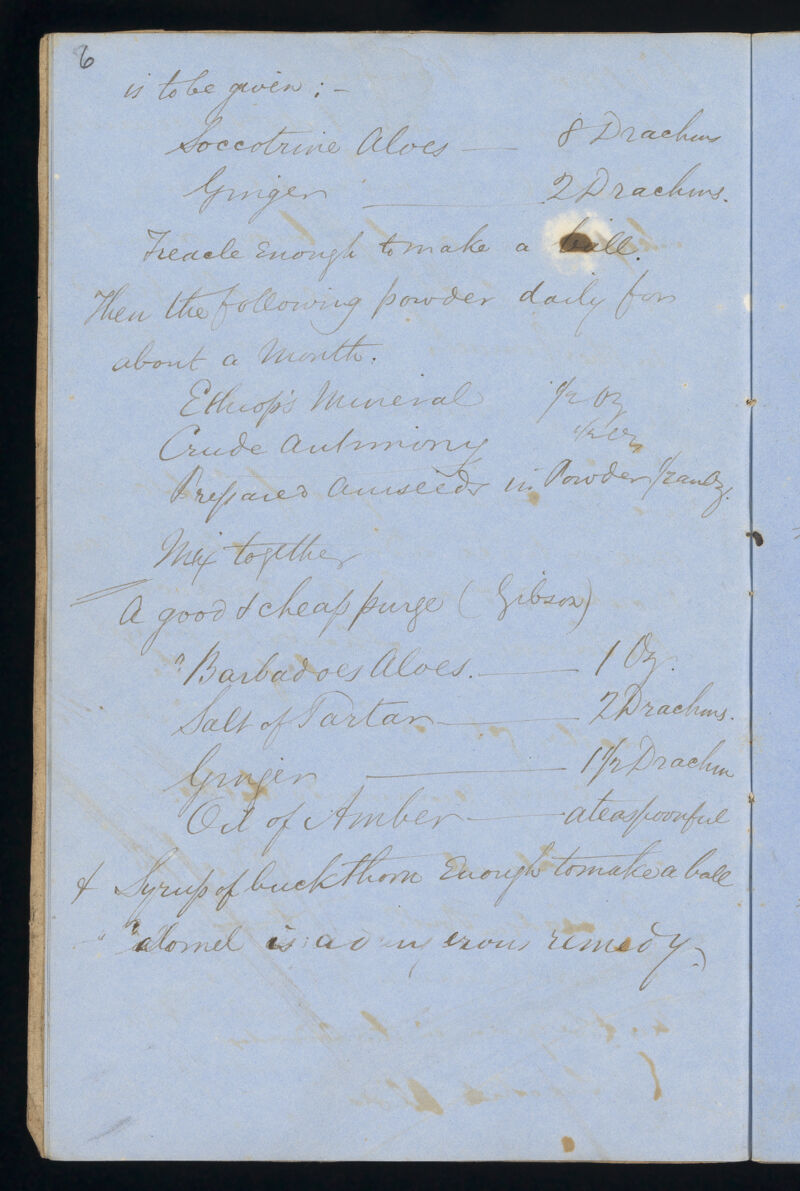 6
is to be given : -
Soccotrine Aloes — 8 Drachms
Ginger — 2 Drachms.
Treacle Enough to make a ball.
Then the following powder daily for
about a Month.
Ethiop's Mineral 1/2 Oz
Crude Antimony 1/2 Oz
Prepared Aniseeds in Powder 1/2 an Oz.
Mix together
A good & cheap purge (Gibson)
"Barbadoes Aloes. — 1 Oz.
Salt of Tartar — 2 Drachms.
Ginger — 1 1/2 Drachm
Oil of Amber — a teaspoonful
& Syrup of buckthorn Enough to make a ball
"Calomel is a dangerous remedy.